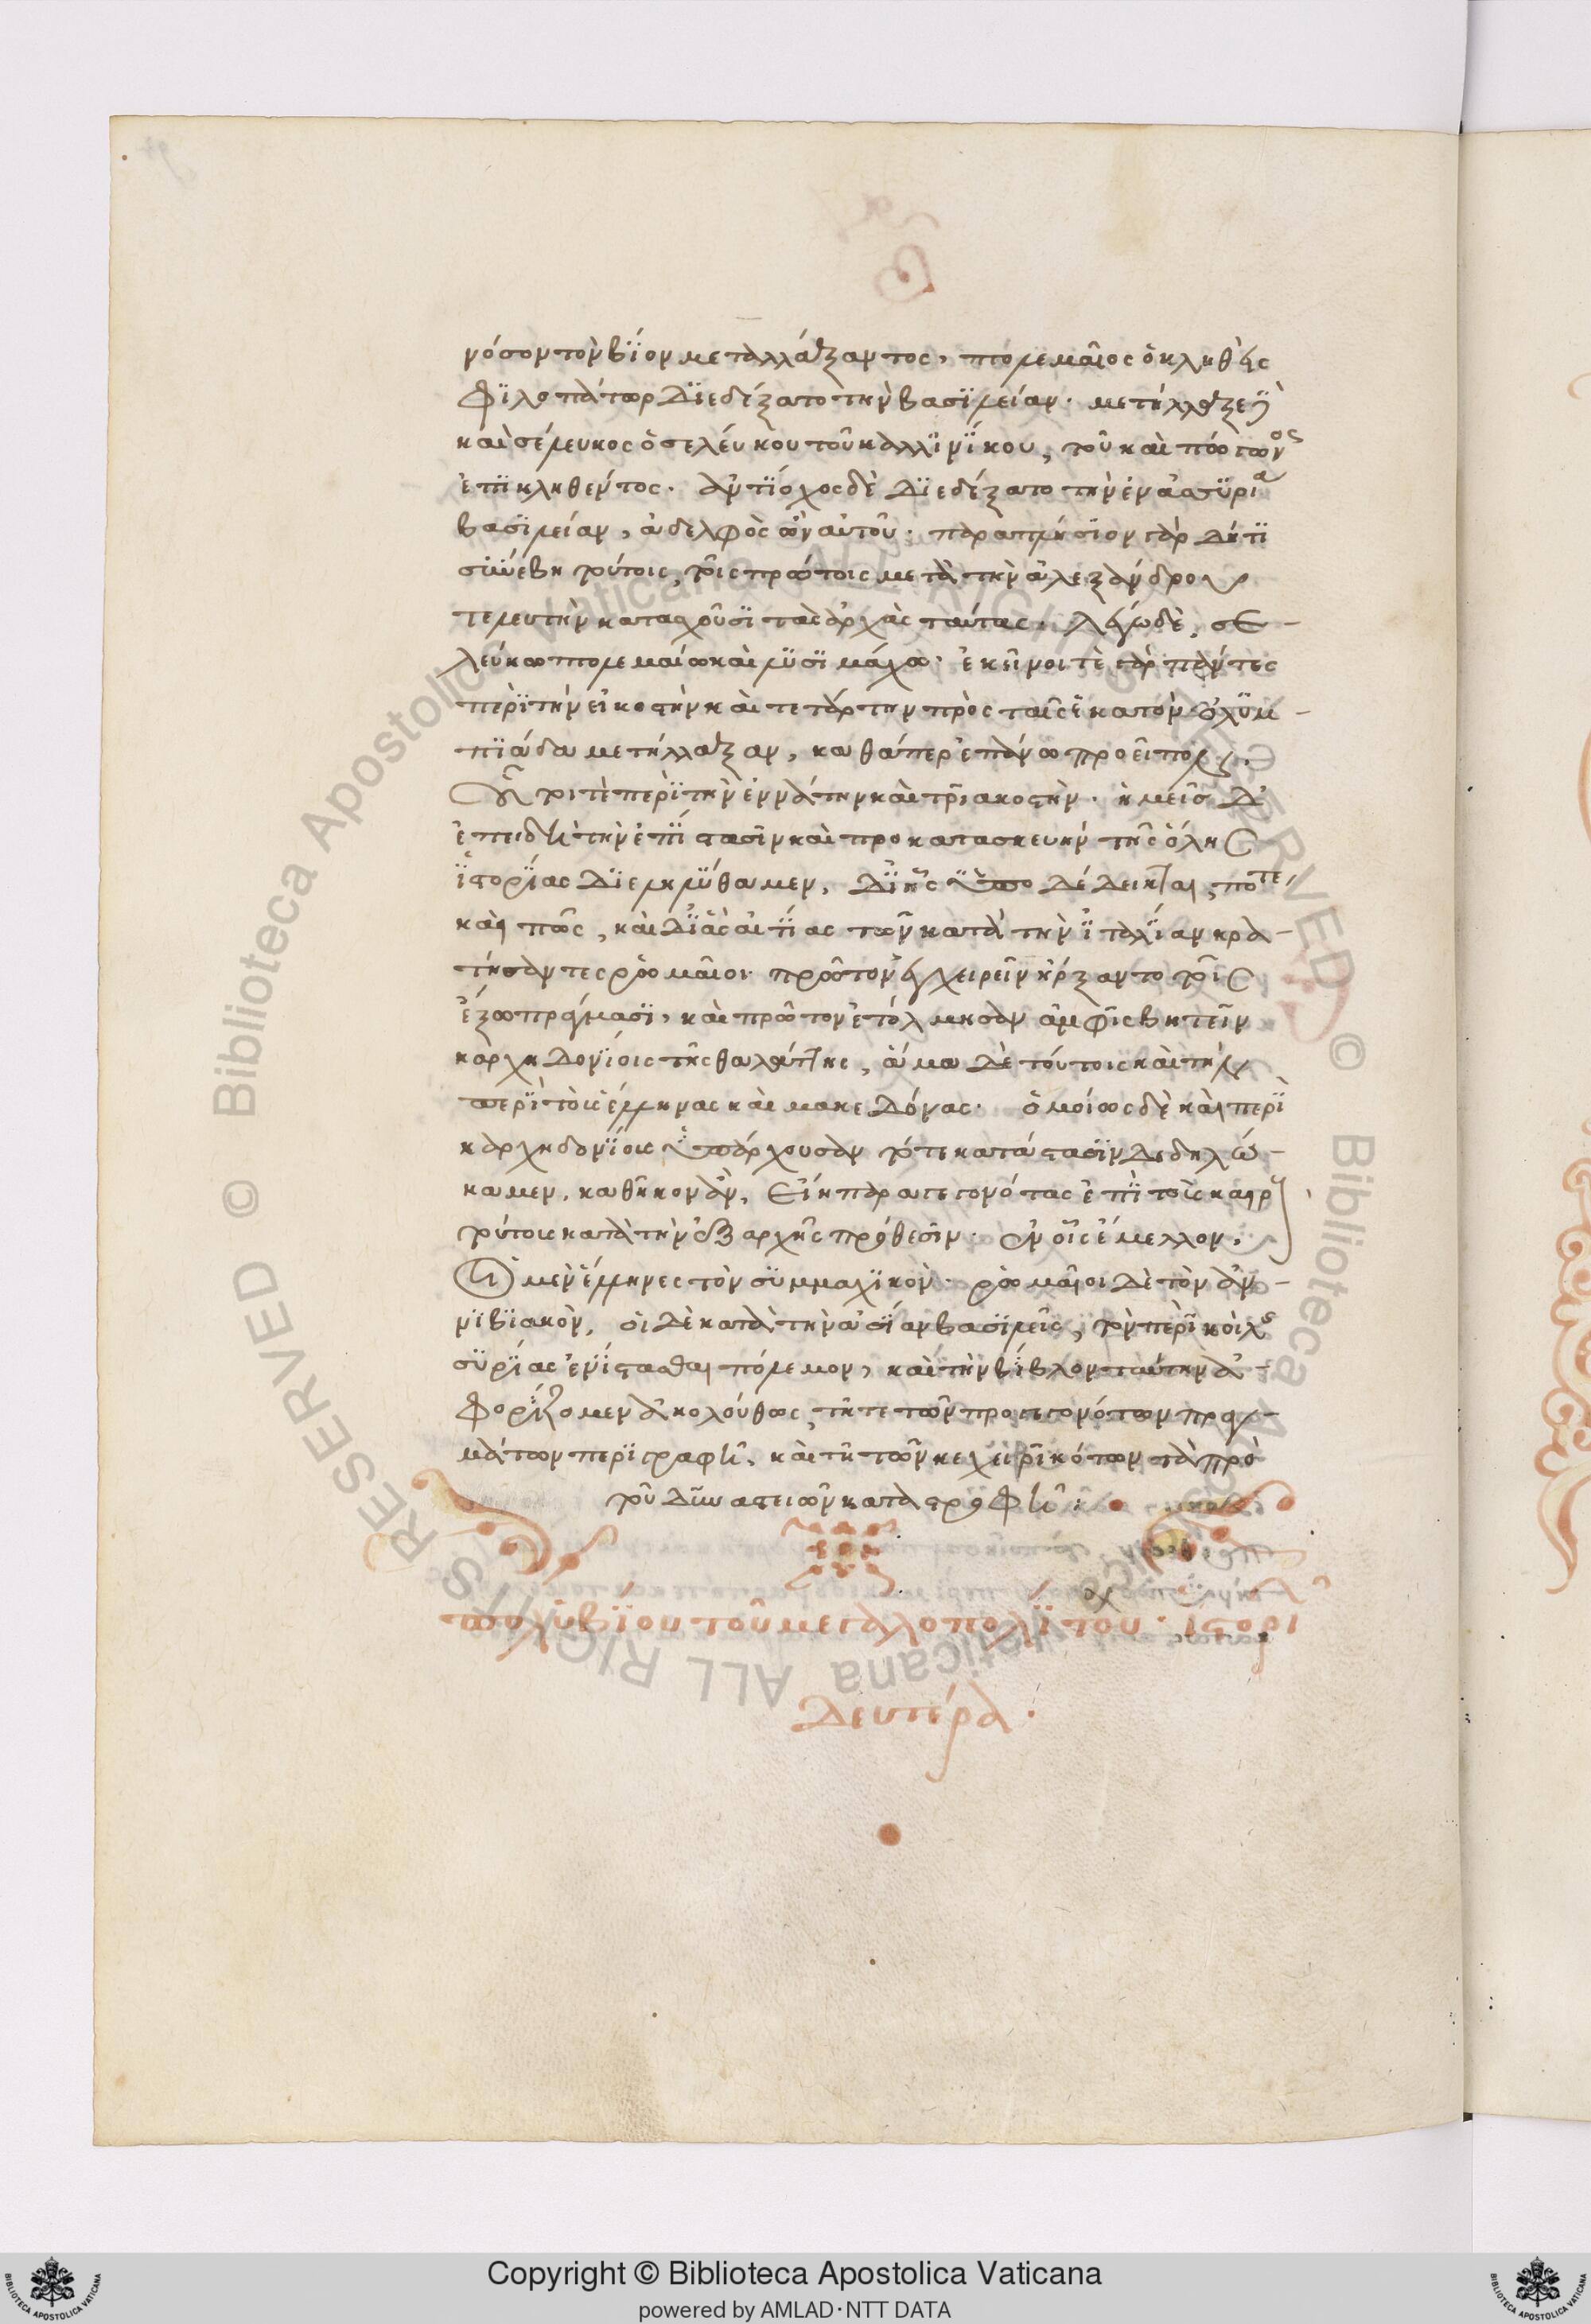 νόσον τὸν βίον μεταλλάξαντος, πτολεμαῖος ὁ κληθεὶς
φιλοπάτωρ διεδέξατο τὴν βασιλείαν. μετήλλαξε δὲ
καὶ σέλευκος ὁ σελεύκου τοῦ καλλινίκου, τοῦ καὶ πώγωνος
ἐπικληθέντος. ἀντίοχος δὲ διεδέξατο τὴν ἐν συρίᾳ
βασιλείαν, ἀδελφὸς ὢν αὐτοῦ. παραπλήσιον γὰρ δή τι
συνέβη τούτοις, τοῖς πρώτοις μετὰ τὴν ἀλεξάνδρου
τελευτὴν κατασχοῦσι τὰς ἀρχὰς ταύτας. λέγω δὲ, σε-
λεύκω πτολεμαίω καὶ λυσιμάχω. ἐκεῖνοι τὲ γὰρ πάντες
περὶ τὴν εἰκοστὴν καὶ τετάρτην πρὸς ταῖς ἑκατὸν ὀλυμ-
πιάδα μετήλλαξαν, καθάπερ ἐπάνω προεῖπον.
οὗτοι τὲ περὶ τὴν ἐννάτην καὶ τριακοστήν. ἡμεῖς δ'
ἐπειδὴ τὴν ἐπίστασιν καὶ προκατασκευὴν τῆς ὅλης
ἱστορίας διεληλύθαμεν, δι' ἧς ὑποδέδεικται, πότε,
καὶ πῶς, καὶ δι' ἃς αἰτίας τῶν κατὰ τὴν ἰταλίαν κρα-
τήσαντες ῥωμαῖοι πρῶτον ἐγχειρεῖν ἤρξαντο τοῖς
ἔξω πράγμασι, καὶ πρῶτον ἐτόλμησαν ἀμφισβητεῖν
καρχηδονίοις τῆς θαλάττης, ἅμα δὲ τούτοις καὶ τὴν
περὶ τοὺς ἕλληνας καὶ μακεδόνας. ὁμοίως δὲ καὶ περὶ
καρχηδονίους ὑπάρχουσαν τότε κατάστασιν δεδηλώ-
καμεν. καθῆκον ἂν, εἴη παραγεγονότας ἐπὶ τοὺς καιρ
τούτους κατὰ τὴν ἐξ ἀρχῆς πρόθεσιν. ἐν οἷς ἔμελλον.
οἱ μὲν ἕλληνες τὸν συμμαχικὸν. ῥωμαῖοι δὲ τὸν ἀν-
νιβιακὸν, οἱ δὲ κατὰ τὴν ἀσίαν βασιλεῖς, τὸν περὶ κοίλης
συρίας ἐνίστασθαι πόλεμον, καὶ τὴν βίβλον ταύτην ἀ-
φορίζομεν ἀκολούθως, τῇ τε τῶν προγεγονότων πραγ-
μάτων περιγραφῇ, καὶ τῇ τῶν κεχειρικότων τὰ πρὸ
τοῦ δυναστειῶν καταστροφῇ:
πολυβίου τοῦ μεγαλοπολίτου. ἱστορι
δευτέρα.
Copyright © Biblioteca Apostolica Vaticana
powered by AMLAD·NTT DATA